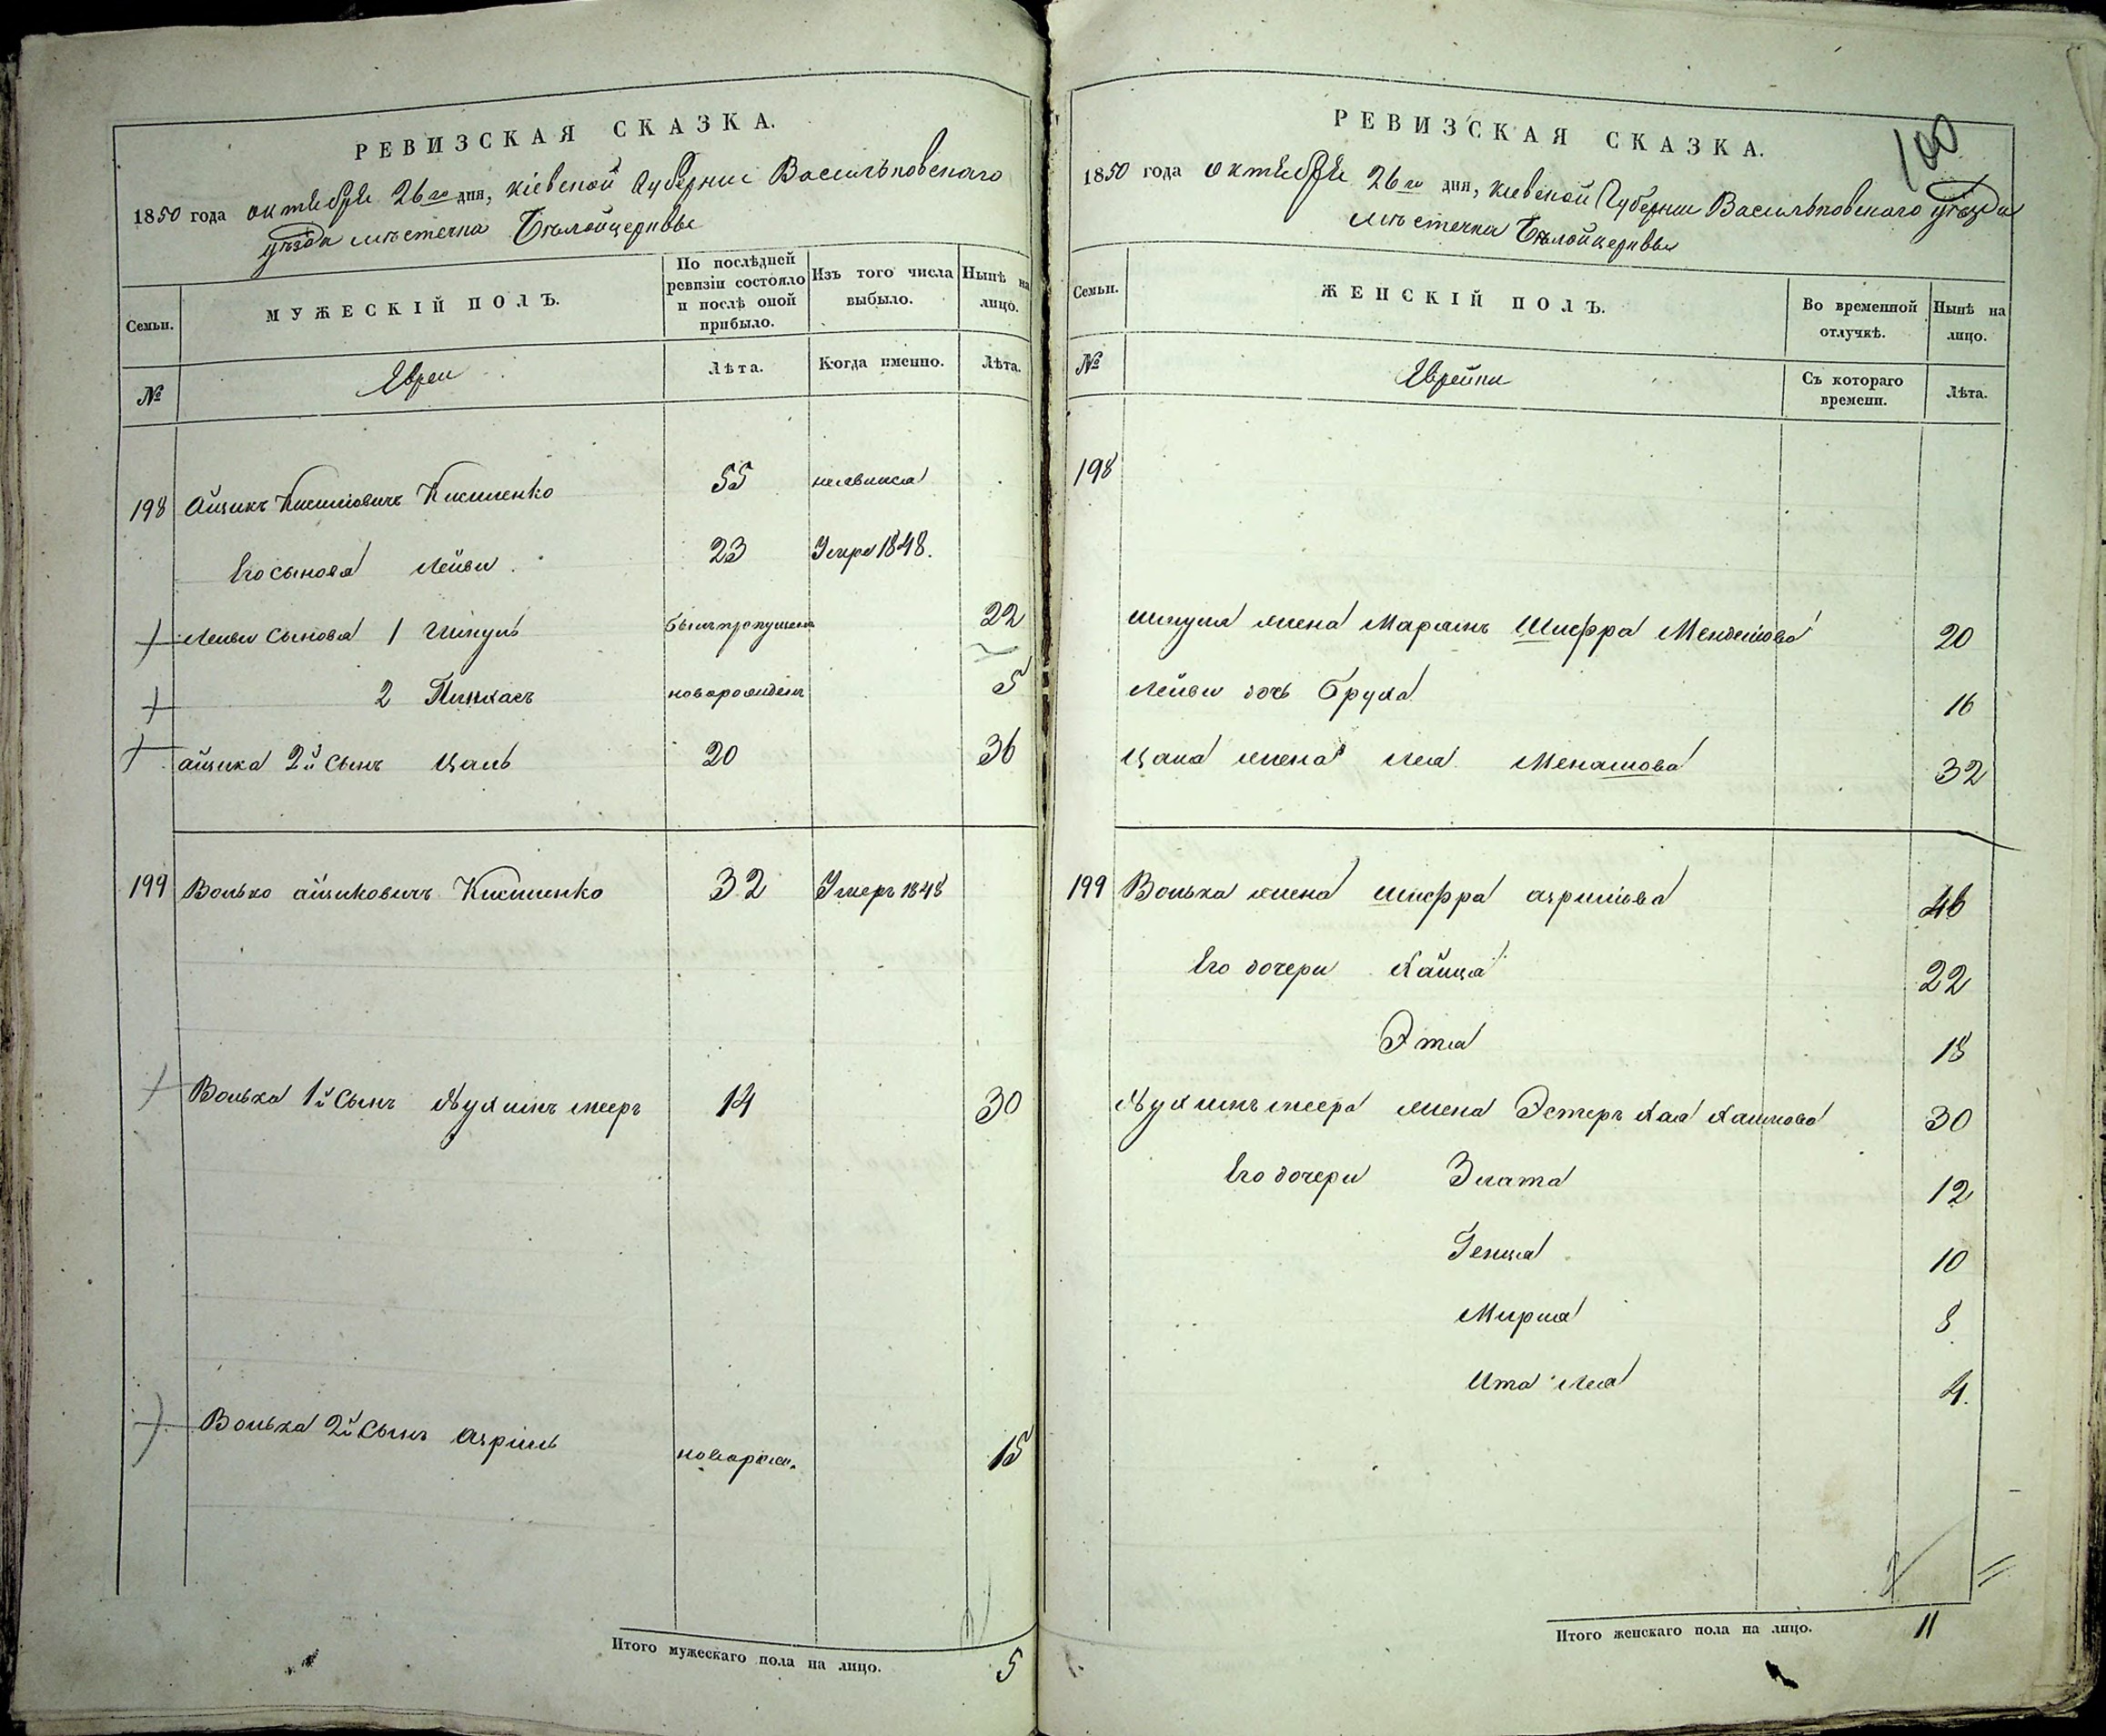 РЕВИЗСКАЯ СКАЗКА.
1850 года октября 26го дня, Кіевской Губерніи Васильковскаго
уѣзда мѣстечка Бѣлойцерквы
Семьи.
МУЖЕСКІЙ ПОЛЪ.
По послѣдней ревизіи состояло и послѣ оной прибыло.
Изъ того числа выбыло.
Нынѣ на лицо.
№
Евреи
Лѣта.
Когда именно.
Лѣта.
198 Айзикъ Кисилiовичъ Кисиленко 55 неявился
Его сыновя Лейви 23 Умеръ 1848.
Лейви сыновя 1 Шмуль былъ пропущенъ 22
2 Пинхасъ новорожденъ 5
айзика 2й сынъ Цаль 20 36
199 Волько айзиковичъ Кисиленко 32 Умеръ 1848
Волька 1й сынъ 14 30
Волька 2й сынъ азріель новорож. 15
Итого мужескаго пола на лицо. 5
100
РЕВИЗСКАЯ СКАЗКА.
1850 года октября 26го дня, Кіевской Губерніи Васильковскаго уѣзда
мѣстечка Бѣлойцерквы
Семьи.
ЖЕНСКІЙ ПОЛЪ.
Во временной отлучкѣ.
Нынѣ на лицо.
№
Еврейки
Съ котораго времени.
Лѣта.
198
Шмуля жена Марьямъ Шифра Менделiова 20
Лейви дочь Бруха 16
Цаля жена Лея Менашова 32
199 Волька жена Шифра азрилiова 46
Его дочери Хайца 22
Этя 18
жена Эстеръ Хая 30
Его дочери Злата 12
Генця 10
Миря 8
Ита Лея 4.
Итого женскаго пола на лицо. 11